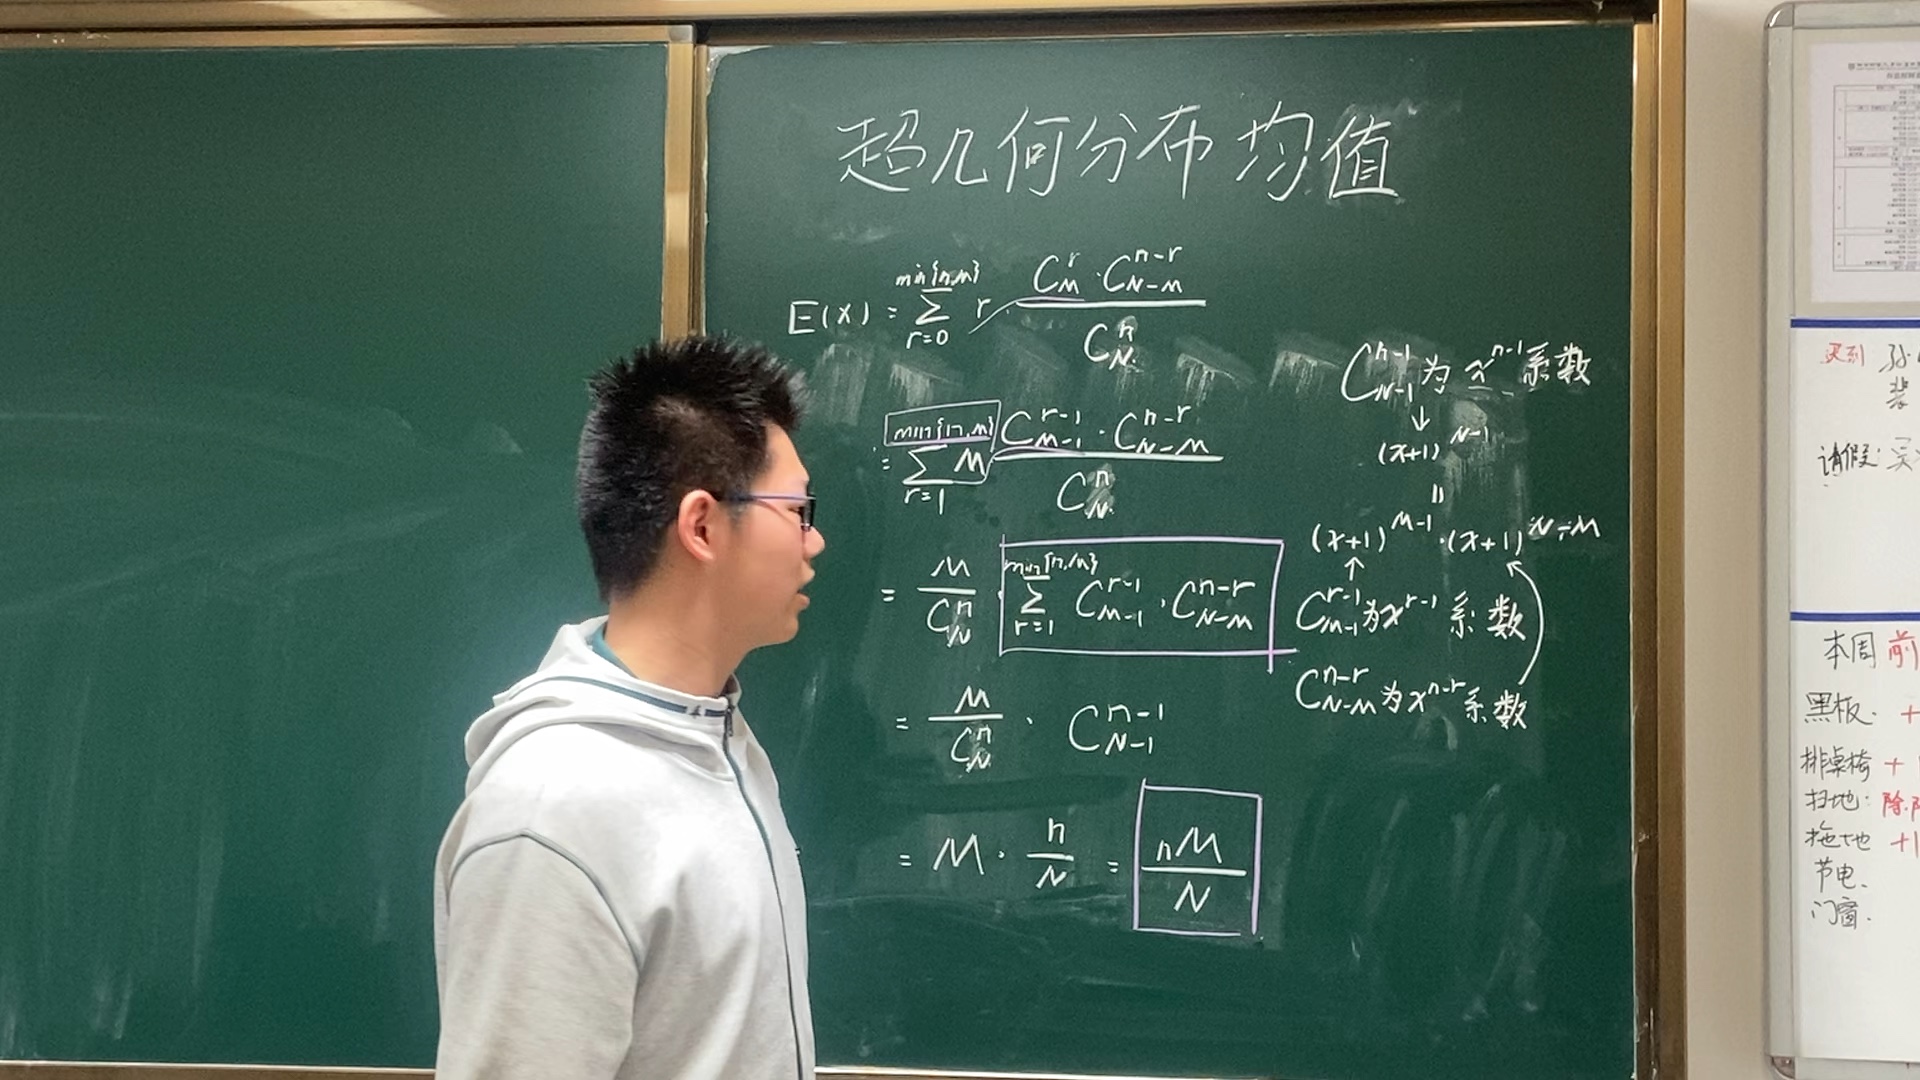 超几何分布均值
E(X) = \sum_{r=0}^{min{n,M}} r · \frac{C_M^r · C_{N-M}^{n-r}}{C_N^n}
= \sum_{r=1}^{min{n,M}} M \frac{C_{M-1}^{r-1} · C_{N-M}^{n-r}}{C_N^n}
= \frac{M}{C_N^n} · \sum_{r=1}^{min{n,M}} C_{M-1}^{r-1} · C_{N-M}^{n-r}
= \frac{M}{C_N^n} · C_{N-1}^{n-1}
= M · \frac{n}{N} = \frac{nM}{N}
C_{N-1}^{n-1}为x^{n-1}系数
↓
(x+1)^{N-1}
=
(x+1)^{M-1}·(x+1)^{N-M}
↑
C_{M-1}^{r-1}为x^{r-1}系数
C_{N-M}^{n-r}为x^{n-r}系数
请假:
本周 前
黑板. +
排桌椅 +
扫地: 除
拖地 +1
节电、
门窗.